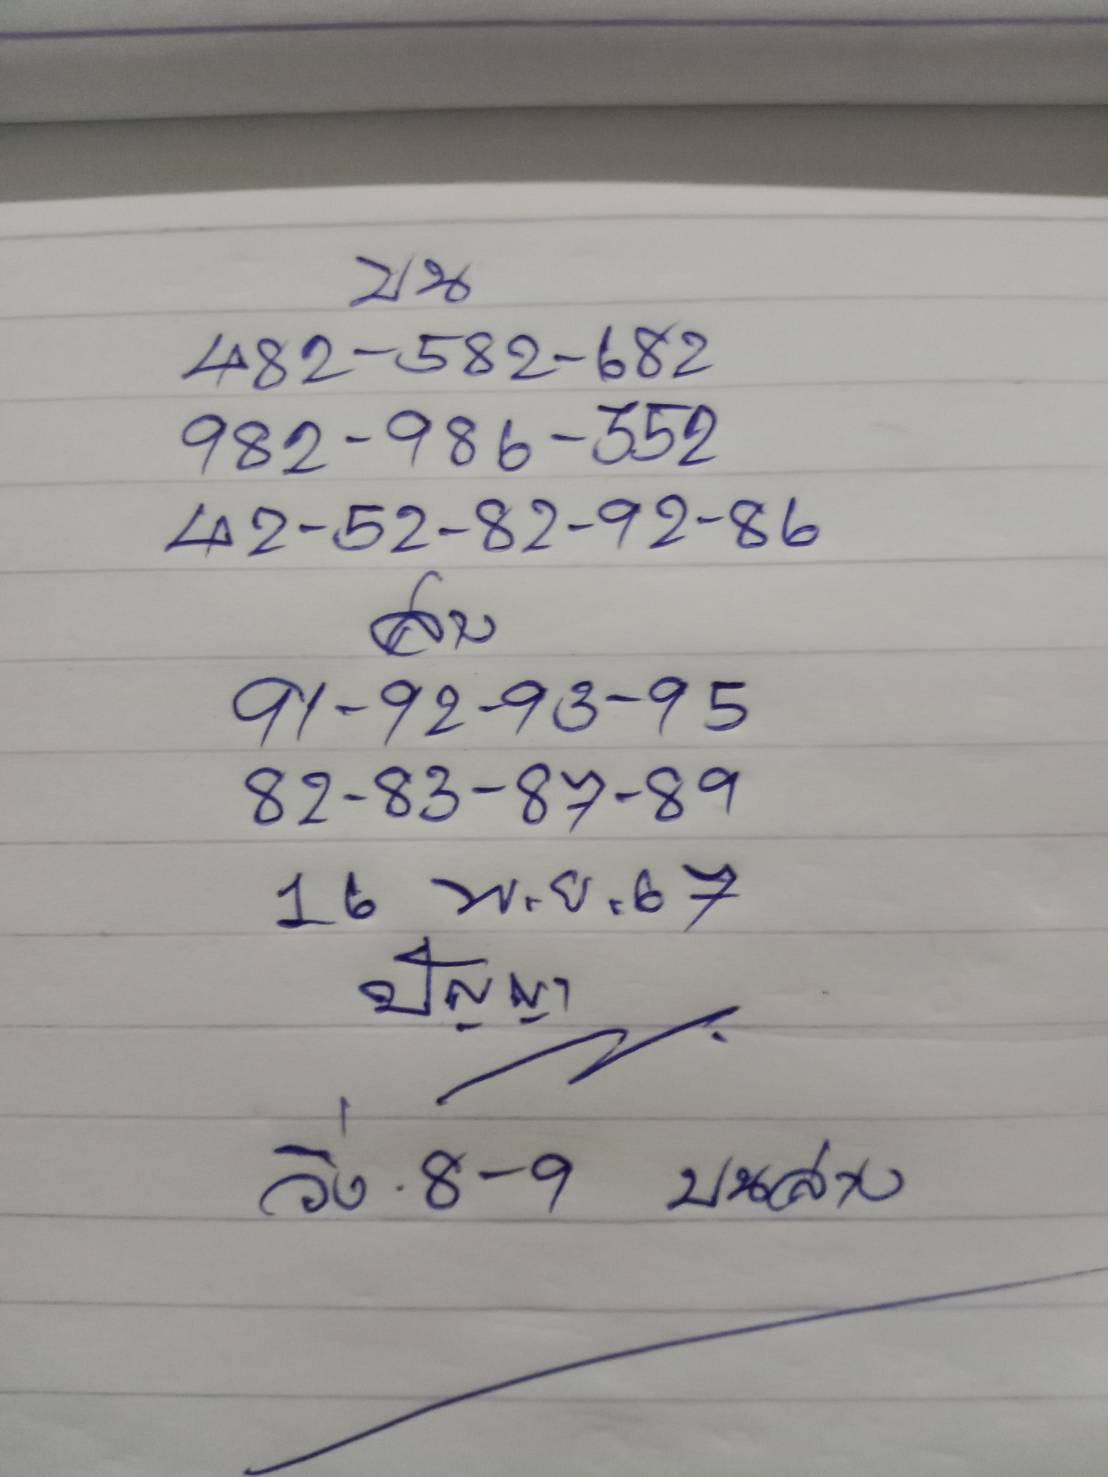 บน
482-582-682
982-986-552
42-52-82-92-86
ล่าง
91-92-93-95
82-83-87-89
16 พ.ย.67
ปัญญา
วิ่ง.8-9 บนล่าง